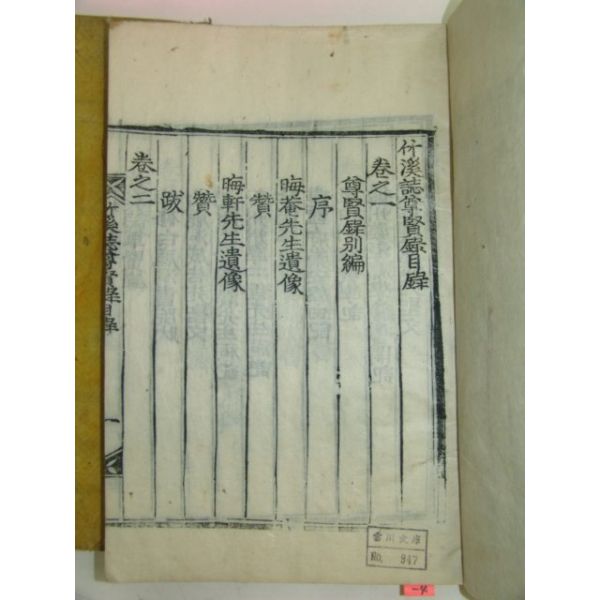 竹溪誌尊賢錄目錄
卷之一
尊賢錄別編
序
晦菴先生遺像
贊
晦軒先生遺像
贊
跋
卷之二
竹溪誌尊賢錄目錄
一
雲川文庫
No. 947